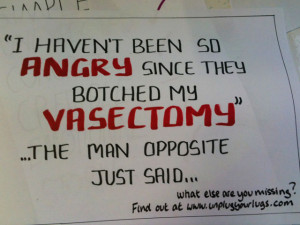 "I HAVEN'T BEEN SO
ANGRY SINCE THEY
BOTCHED MY
VASECTOMY"
...THE MAN OPPOSITE
JUST SAID...
what else are you missing?
Find out at www.unplugyourlugs.com